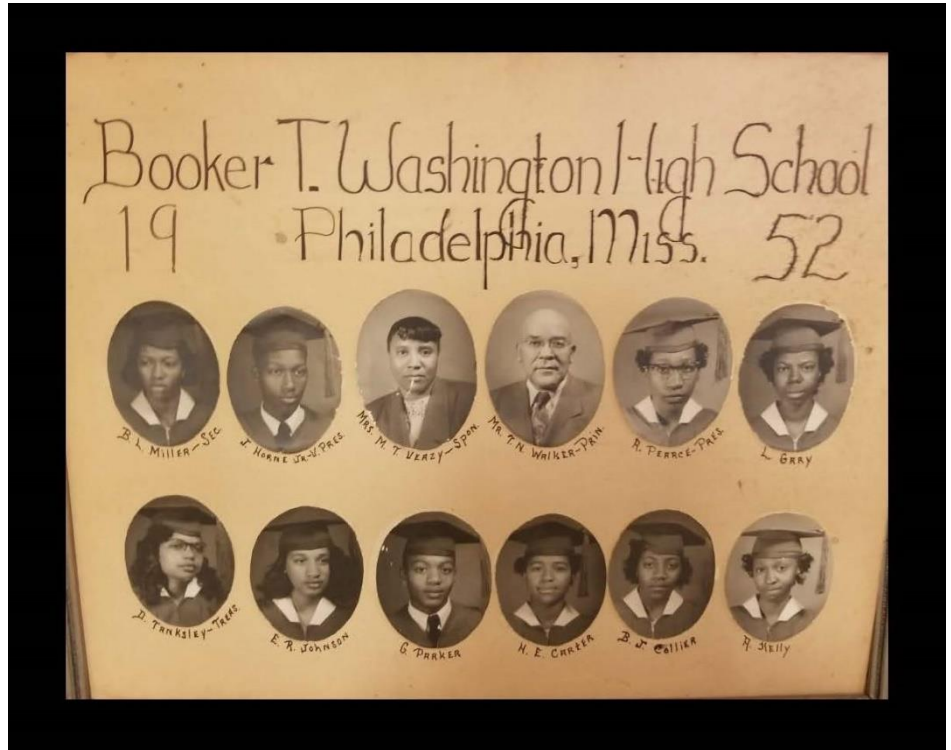 Booker T. Washington High School
19 Philadelphia, Miss. 52
B. L. Miller-Sec.
J. Horne Jr.-V. Pres.
Mrs. M. T. Veazy-Spon.
Mr. T. N. Walker-Prin.
R. Pearce-Pres.
L. Gray
D. Tanksley-Treas.
E. R. Johnson
G. Parker
H. E. Carter
B. J. Collier
R. Kelly